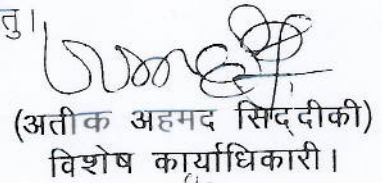 तु।
(अतीक अहमद सिद्दीकी)
विशेष कार्याधिकारी।